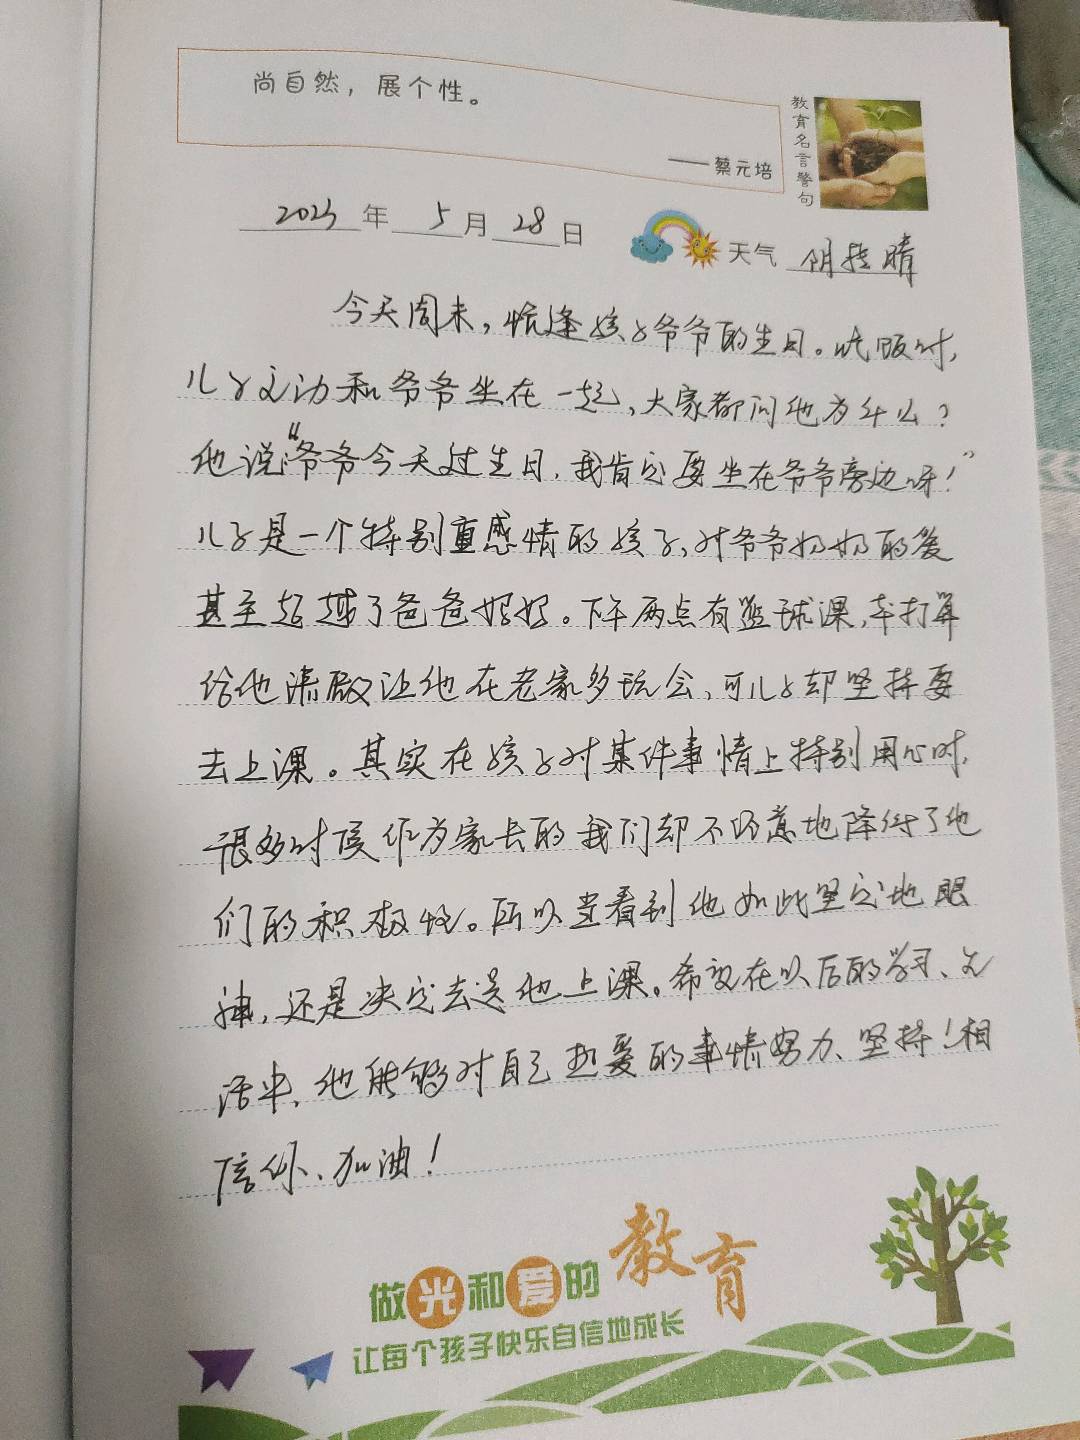 尚自然，展个性。
——蔡元培
教育名言警句
2023年5月28日
天气 阴转晴
今天周末，恰逢孩子爷爷的生日。吃饭时，
儿子主动和爷爷坐在一起，大家都问他为什么？
他说："爷爷今天过生日，我肯定要坐在爷爷旁边呀！"
儿子是一个特别重感情的孩子，对爷爷奶奶的爱
甚至超越了爸爸妈妈。下午两点有篮球课，本打算
给他请假让他在老家多玩会，可儿子却坚持要
去上课。其实在孩子对某件事情上特别用心时，
很多时候作为家长的我们却不经意地降低了他
们的积极性。所以当看到他如此坚定地眼
神，还是决定去送他上课。希望在以后的学习、生
活中，他能够对自己热爱的事情努力、坚持！相
信你、加油！
做光和爱的教育
让每个孩子快乐自信地成长